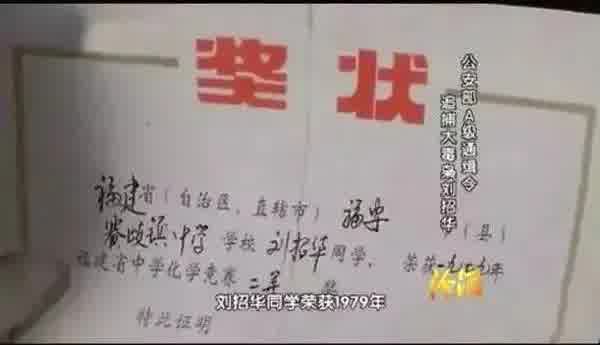 奖状
公安部A级通缉令
追捕大毒枭刘招华
福建省(自治区、直辖市)福安(县)
赛岐镇中学学校刘招华同学,荣获一九七九年
福建省中学化学竞赛二等奖
特此证明
刘招华同学荣获1979年